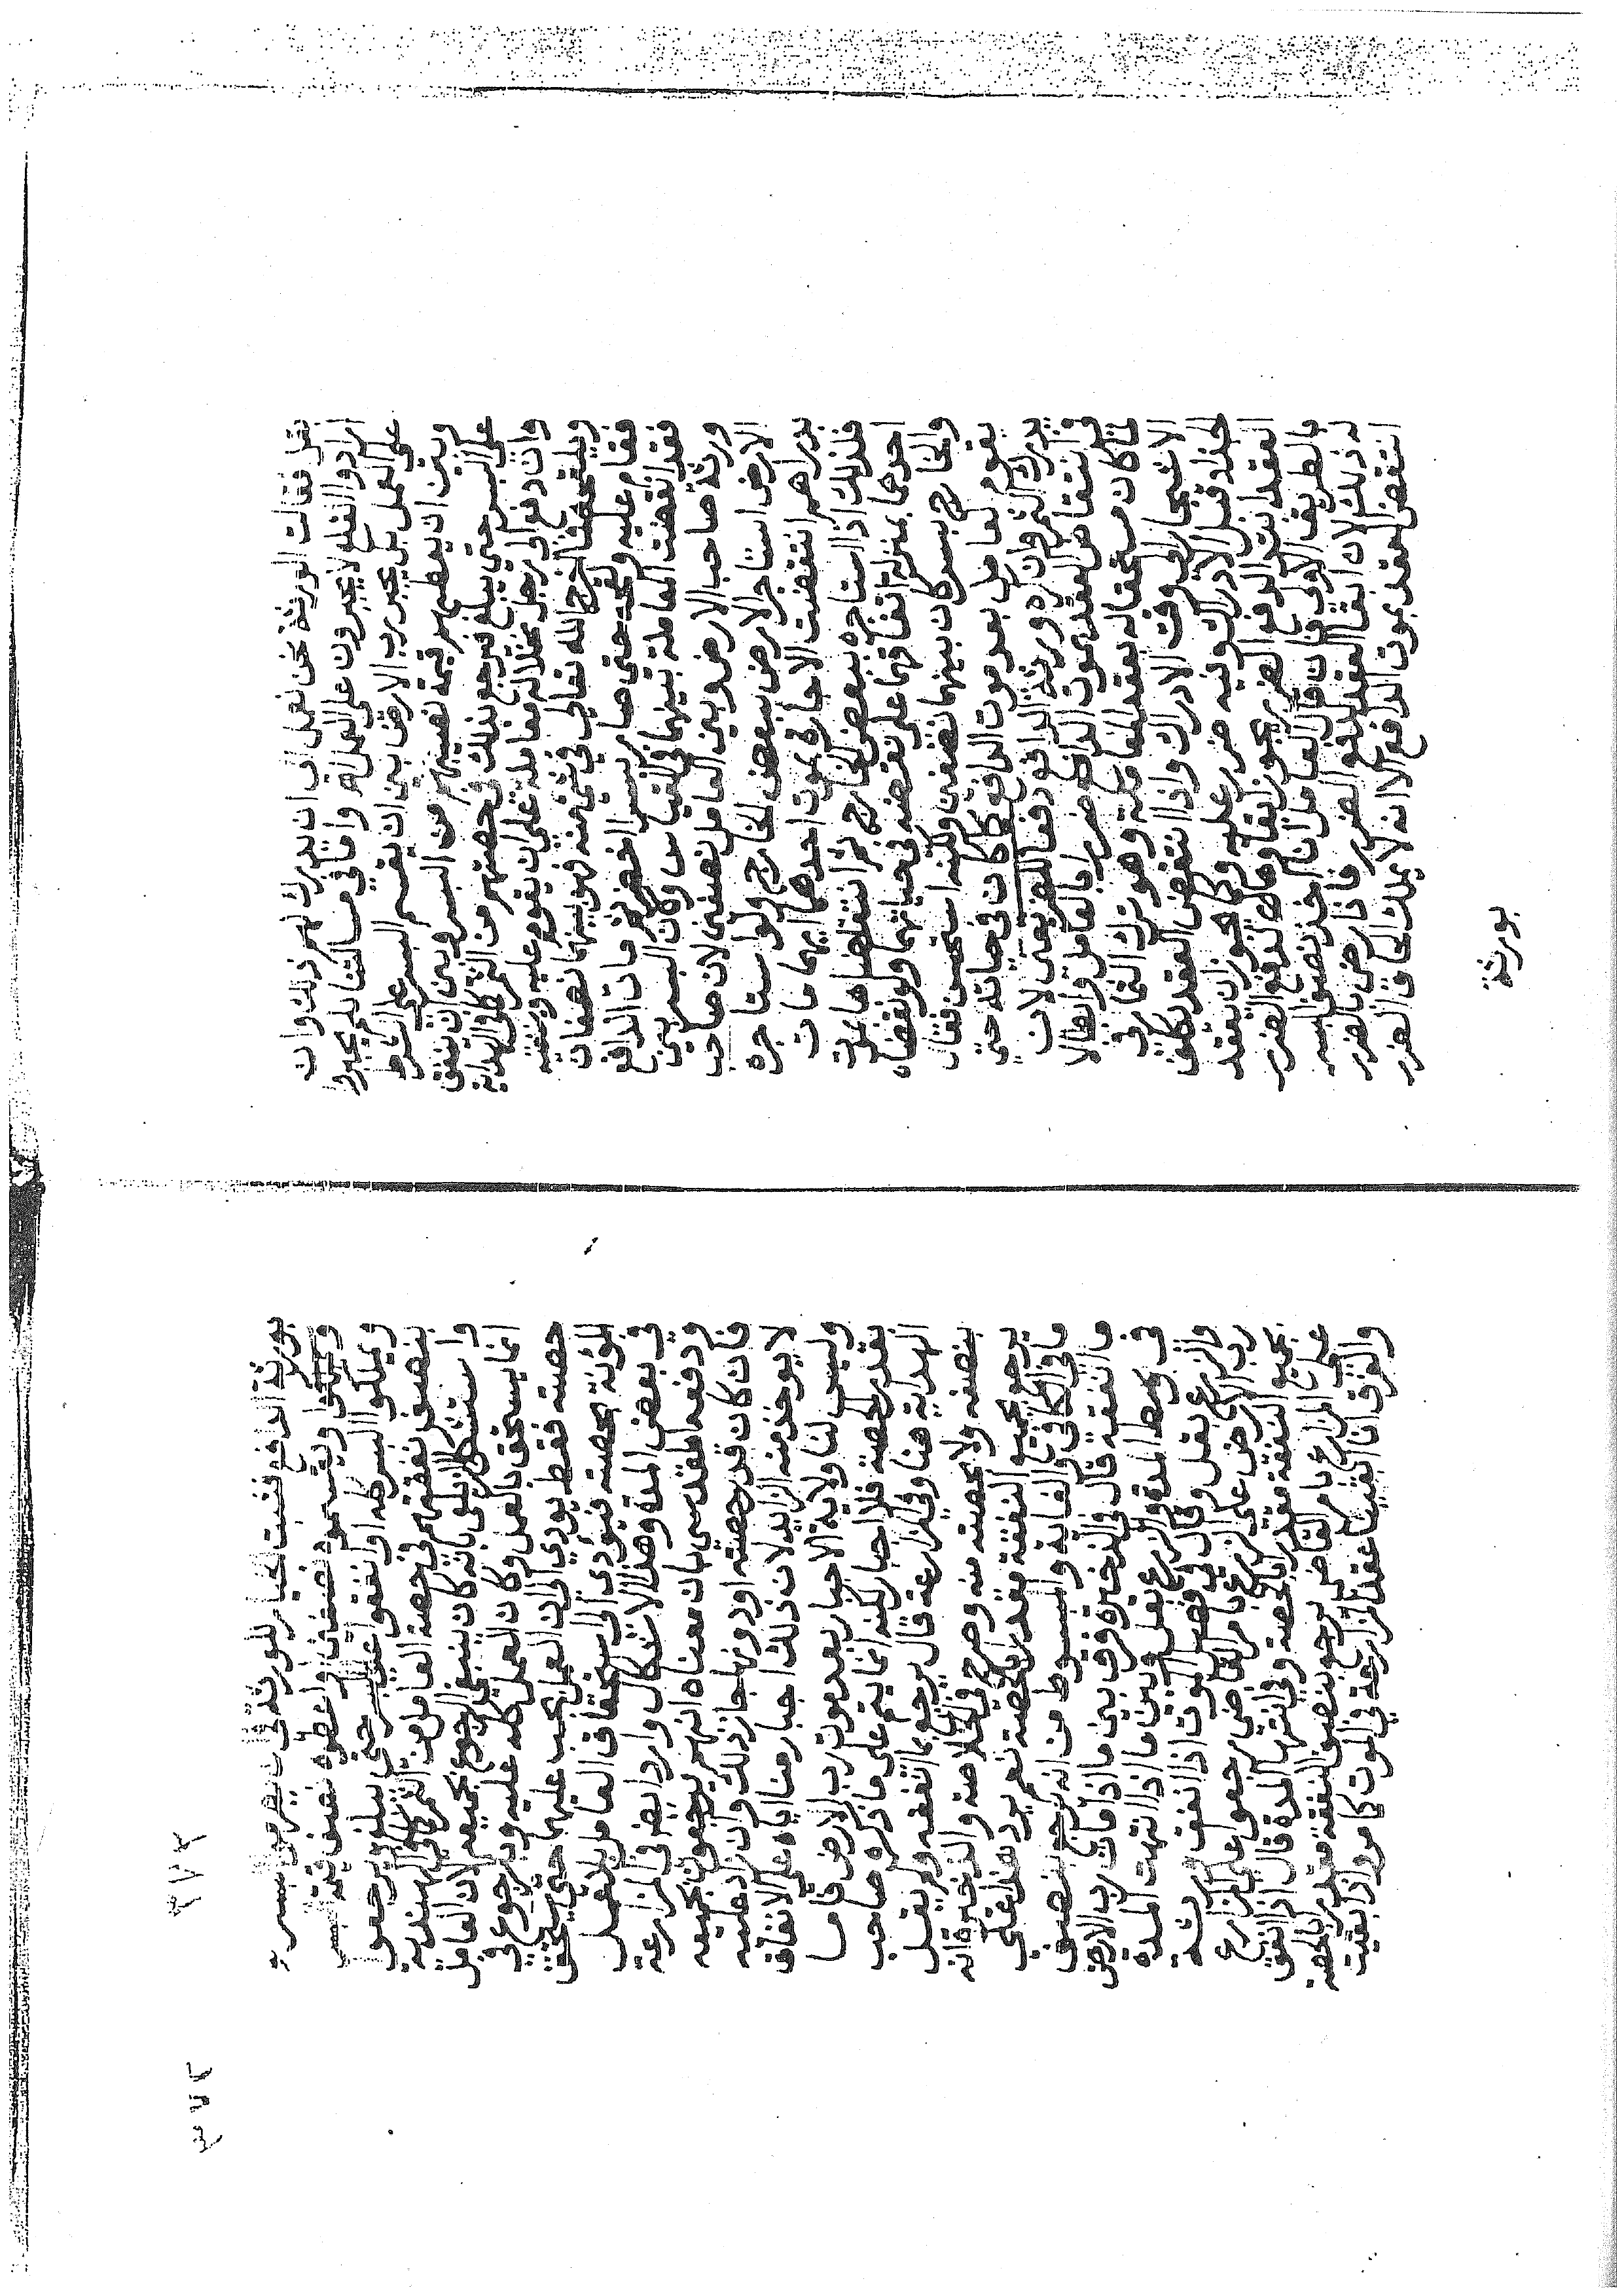 بقل فقالت الورثة نحن نعمل الى ان يدرك لهم ذلك وان
ارادوا القلع لا يجبرون على العمل اهـ واما في مسالتنا لم يجبروا
على العمل بل يجبر رب الارض بين ان يقسم البسر على الشرط
وبين ان يعطيهم قيمة نصيبهم من البسر وبين ان ينفق
على البسر حتى يبلغ فيرجع بذلك في حصتهم من الثمر كذا في الهداية
وان دفع الى رجل نخلا له معاملة على ان يقوم عليه ويسقيه
ويلقحه فما اخرج الله تعالى في شئ منه فهو بينهما نصفان
فقام عليه ولقحه حتى صار بسرا اخضر ثم مات الدافع
فقد انقضت المعاملة بينهما في القياس وكان البسر بين
ورثة صاحب الارض وبين العامل نصفين لان صاحب
الارض استاجر الارض ببعض الخارج ولو استاجره
بدراهم انتقضت الاجارة بموت احدهما ايهما مات
فكذلك اذا استاجره ببعض الخارج ثم انتقاضها بموت
احدهما بمنزلة اتفاقهما على نقضه في حياتهما ولو نقضاه
والخارج بسر كان بينهما نصفين ولكنه استحسن فقال
يقوم العامل بعد موت الدافع كما كان في حياته حتى
يدرك الثمر وان كره ورثة الدافع دفعا للضرر يعني لان
في انتقاض العقد بموت الدافع ضررا بالعامل وابطالا
لما كان مستحقا له بعقد المعاملة وهو ترك الثمار في
الاشجار الى وقت الادراك واذا انتقض العقد يكلف
الجذاذ قبل الادراك وفيه ضرر عليه وكما يجوز ان يعقد
العقد ابتداء لدفع الضرر يجوز ابقاؤه لدفع الضرر
بالطريق الاولى فان قال العامل انا اخذ نصف البسر
له ذلك لان ابقاء العقد لدفع الضرر فاذا رضي بالضرر
انتقض العقد بموت الدافع الا انه لا يملك الحاق الضرر
بورثة
بورثة الدافع فيثبت الخيار للورثة
ويقسموه نصفين او اعطوه نصف قيمة البسر
ويملكوا البسر كله او انفقوا على البسر حتى يبلغ ويرجعوا
بنصف نفقتهم في حصة العامل من الثمر كذا في الهندية
واستشكل الزيلعي بانه كان ينبغي الرجوع بجميعه لان العامل
انما يستحق بالعمل وكان العمل كله عليه والرجوع في
حصته فقط يؤدي الى ان العمل يجب عليهما حتى يستحق
المؤنة بحصته فيؤدي الى استحقاق العامل بلا عمل
في بعض المدة وهذا الاشكال وارد ايضا في المزارعة
ودفعه المقدسي بان معناه انهم يرجعون بجميعه
فان كان قدر حصته او دونها جاز ذلك وان زاد عليه
لا يؤخذ منه الزايد لان ذلك اجبار منا اياه على الانفاق
وليس لنا ولاية الاجبار بعد موت رب الارض فاما
بقدر الحصة فلا اجبار لكنه انما يتم على ما ذكره صاحب
الهداية هنا وفي المزارعة قال يرجع بما انفقه ولم يقل
بنصفه ولا بحصته منه وصرح في الخلاصة والذخيرة انه
يرجع بجميع النفقة مقدرا بالحصة نعم يرد هذا على
ما في الكافي والغاية والمبسوط من انه يرجع بنصف
ما انفقه قال في الذخيرة فرق بين ما اذا مات رب الارض
في وسط المدة والزرع بقل وبين ما اذا انتهت المدة
والزرع بقل وقال في فصل الموت اذا انفق ورثة
رب الارض على الزرع بامر القاضي رجعوا على المزارع
بجميع النفقة مقدرا بالحصة وفي انتهاء المدة قال اذا انفق
على المزارع بامر القاضي يرجع بنصف النفقة مقدرا بالحصة
والفرق انا ابقينا عقد المزارعة في الموت كما مر واذا بقيت